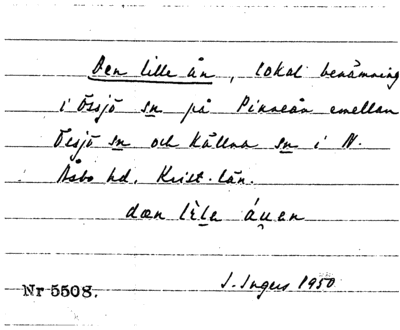 Den lille ån, lokal benämning
i Össjö sn på Pinneån emellan
Össjö sn och Källna sn i N.
Åsbo hd. Krist. län.
dæn lìla áu̯en
Nr 5508.
I. Ingers 1950